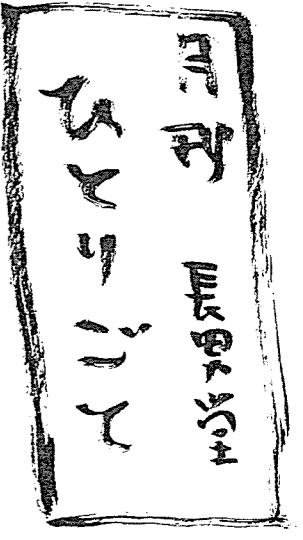 長男堂
ひとりごと